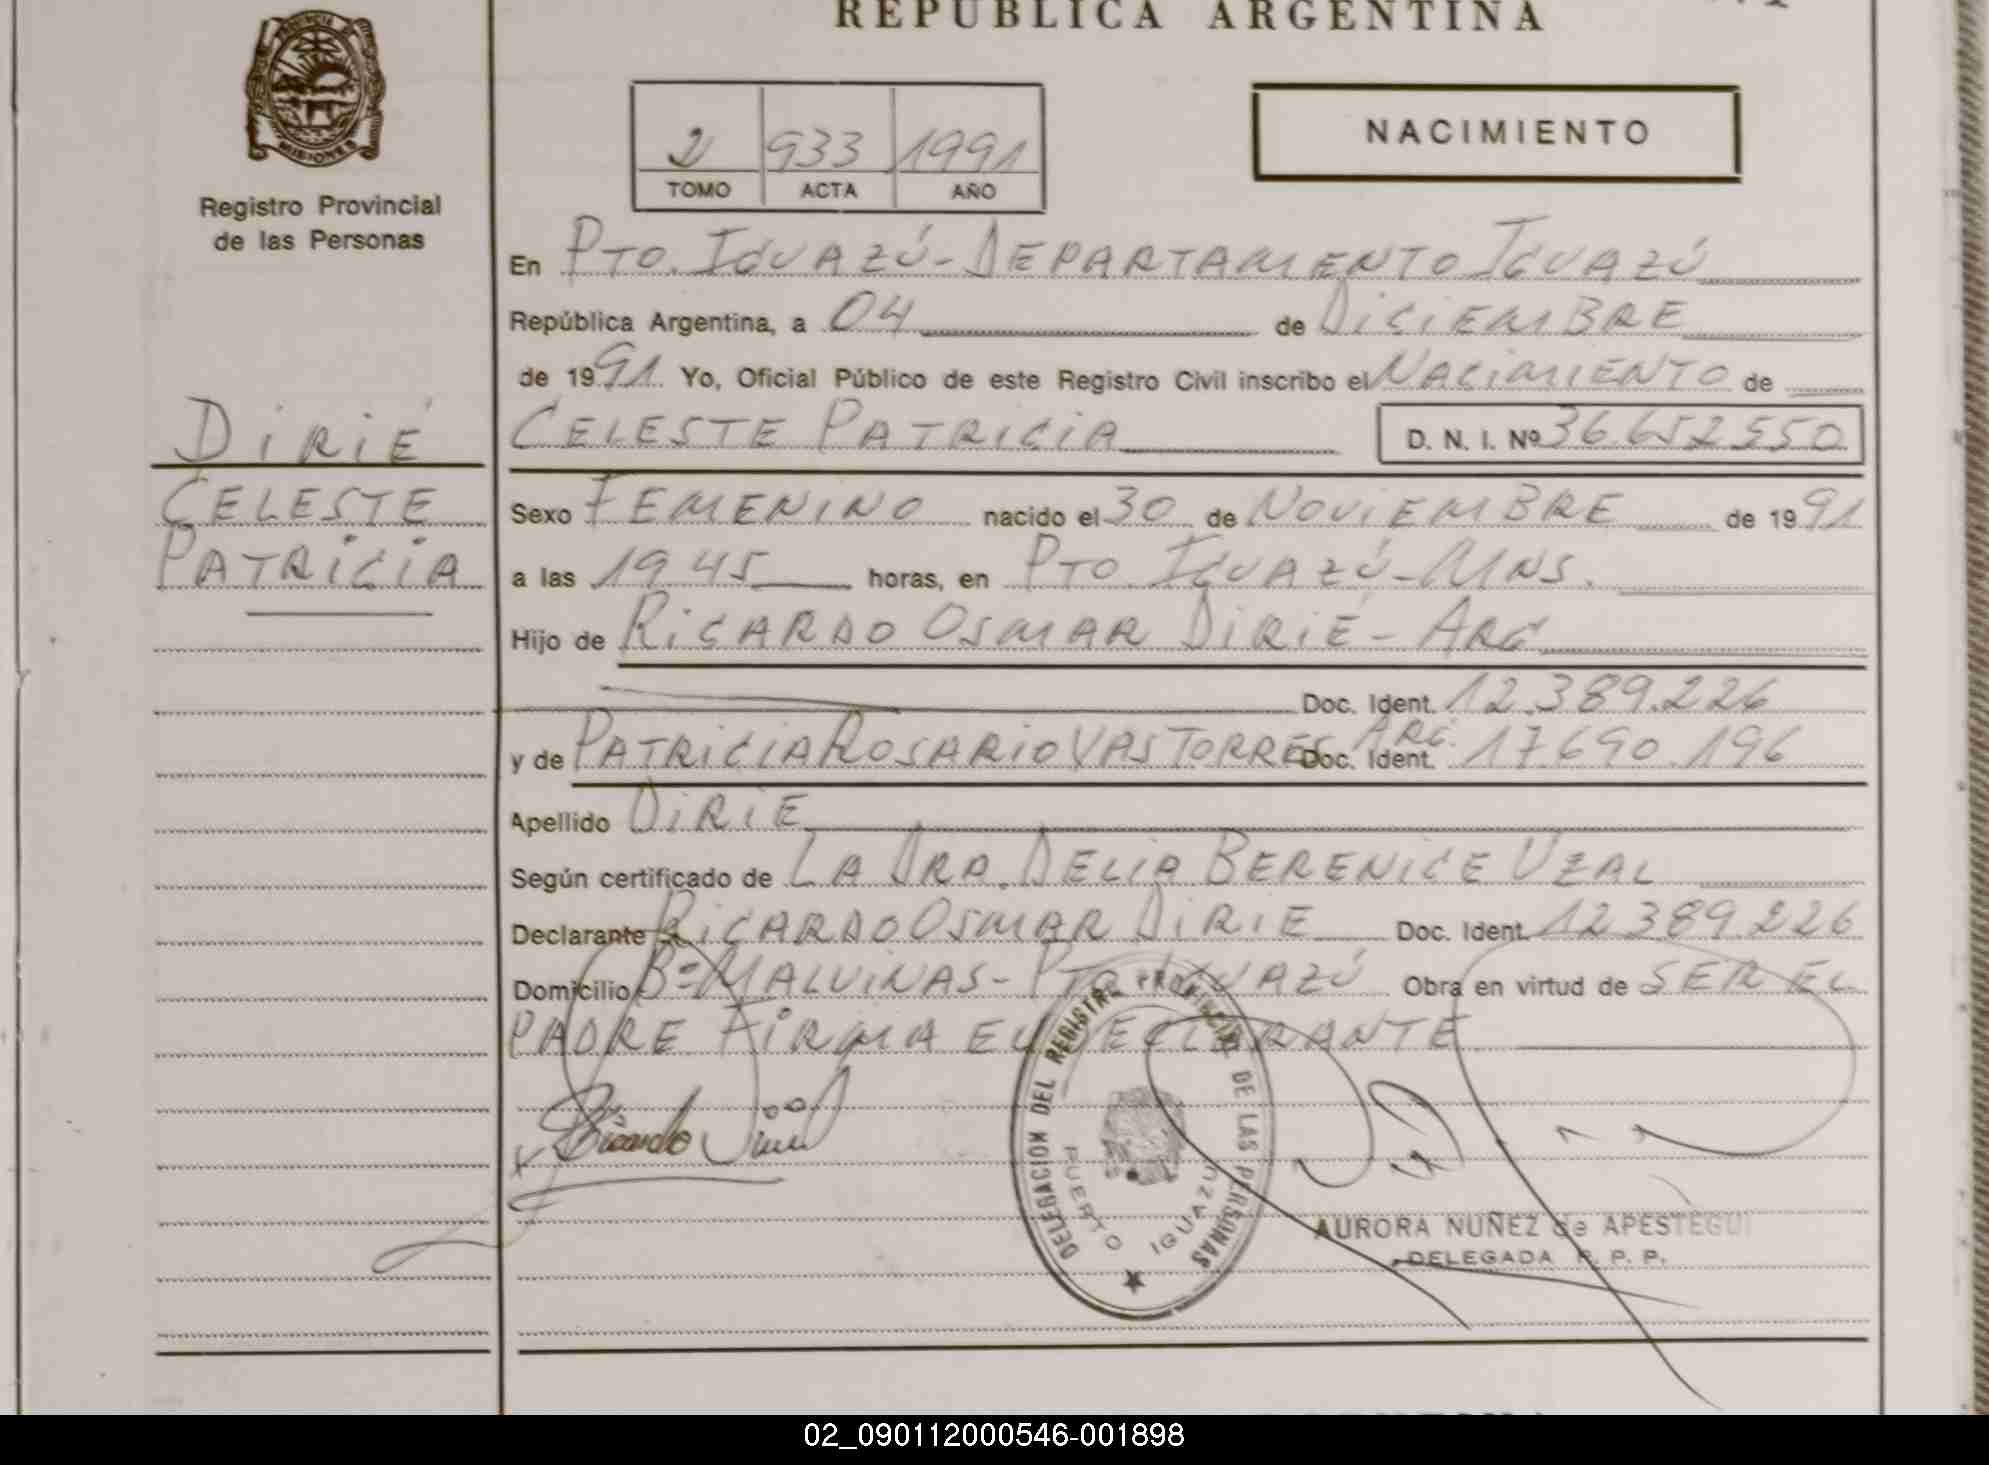 REPUBLICA ARGENTINA
PROVINCIA DE
MISIONES
Registro Provincial
de las Personas
2 933 1991
TOMO ACTA AÑO
NACIMIENTO
En PTO. IGUAZÚ - DEPARTAMENTO IGUAZÚ
República Argentina, a 04 de DICIEMBRE
de 1991. Yo, Oficial Público de este Registro Civil inscribo el NACIMIENTO de
DIRIÉ
CELESTE PATRICIA
D. N. I. Nº 36.652550
CELESTE
PATRICIA
Sexo FEMENINO nacido el 30 de NOVIEMBRE de 1991
a las 19 45 horas, en PTO. IGUAZÚ - MNS.
Hijo de RICARDO OSMAR DIRIÉ - ARG
Doc. Ident. 12.389.226
y de PATRICIA ROSARIO VAS TORRES ARG. Doc. Ident. 17.690.196
Apellido DIRIE
Según certificado de LA DRA. DELIA BERENICE UZAL
Declarante RICARDO OSMAR DIRIE Doc. Ident. 12.389.226
Domicilio Bº MALVINAS - PTO. IGUAZÚ Obra en virtud de SER EL
PADRE FIRMA EL DECLARANTE
Ricardo
DELEGACION DEL REGISTRO PROVINCIAL DE LAS PERSONAS
PUERTO IGUAZU
AURORA NUÑEZ de APESTEGUI
DELEGADA R. P. P.
02_090112000546-001898